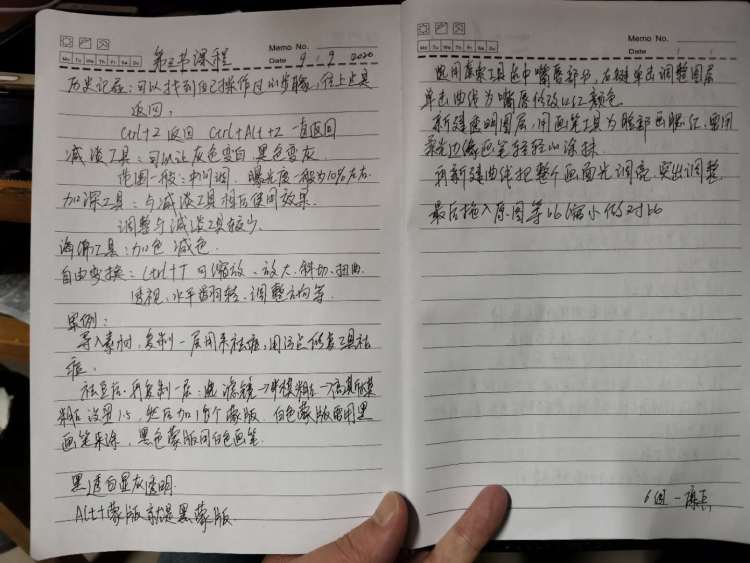 Memo No.
Mo Tu We Th Fr Sa Su
Date 9 . 9 2020
第三节课程
历史记录:可以找到自己操作过的步骤,往上点是
返回,
Ctrl+Z 返回 Ctrl+Alt+Z 一直返回
减淡工具:可以让灰色变白 黑色变灰
范围一般:中间调,曝光度一般为10%左右
加深工具:与减淡工具相反使用效果.
调整与减淡工具较少.
海绵工具:加色 减色.
自由变换:Ctrl+T 可缩放、放大、斜切、扭曲.
透视、水平翻转、调整方向等.
案例:
导入素材,复制一层用来祛痘,用污点修复工具祛
痘.
祛豆后.再复制一层. 滤镜→模糊→高斯模
糊 设置1.5,然后加1个蒙版 白色蒙版要用黑
画笔来涂,黑色蒙版用白色画笔.
黑透白显灰透明.
Alt+蒙版 就是黑蒙版.
Memo No.
Mo Tu We Th Fr Sa Su
Date
选用套索工具选中嘴唇部分,右键单击调整图层
单击曲线为嘴唇修改口红颜色.
新建透明图层,用画笔工具为脸部画腮红,要用
柔光边缘画笔轻轻的涂抹.
再新建曲线把整个画面光调亮.突出调整.
最后拖入原图等比缩小做对比